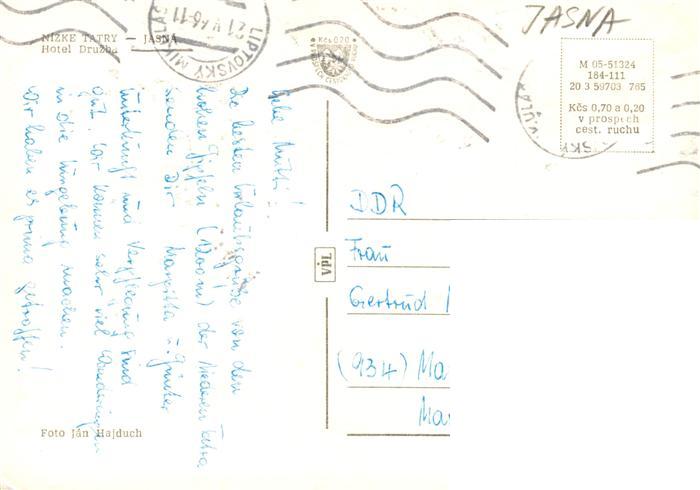 NÍZKE TATRY — JASNÁ
Hotel Družba
JASNA
LIPTOVSKÝ MIKULÁŠ
Kčs 0,20
M 05-51324
184-111
20 3 59703 765
Kčs 0,70 a 0,20
v prospech
cest. ruchu
Liebe Mutti!
Die besten Urlaubsgrüße von den
hohen Gipfeln (1200m) der Niederen Tatra
senden Dir Margitta u. Günter
Unterkunft und Verpflegung sind
gut. Wir können sehr viel Wanderungen
in die Umgebung machen.
Wir haben es prima getroffen!
VPL
DDR
Frau
Gertrud
(934) Ma
Ma
Foto Ján Hajduch